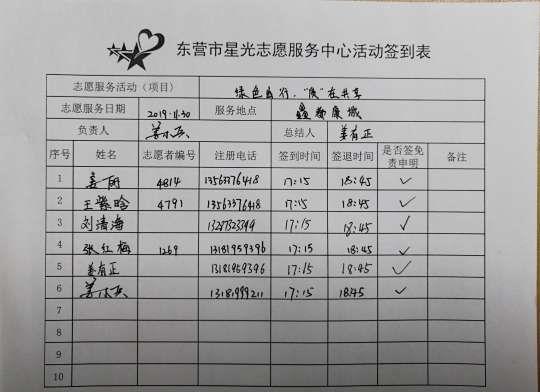 东营市星光志愿服务中心活动签到表
志愿服务活动（项目） 绿色出行，"政"在共享
志愿服务日期 2019.11.30 服务地点 鑫都康城
负责人 姜小兵 总结人 姜有正
序号 姓名 志愿者编号 注册电话 签到时间 签退时间 是否签免责申明 备注
1 姜 4814 13563376418 17:15 18:45 ✓
2 王紫晗 4791 13563376418 17:15 18:45 ✓
3 刘清海 17:15 18:45 ✓
4 张红梅 1269 13181959396 17:15 18:45 ✓
5 姜有正 13181959396 17:15 18:45 ✓
6 13181999211 17:15 18:45 ✓
7
8
9
10